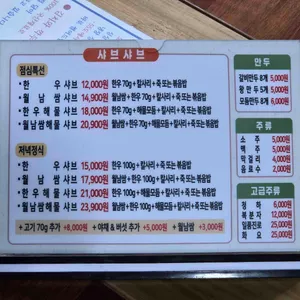 샤브샤브
점심특선
• 한 우 샤브 12,000원 한우70g + 칼사리 + 죽 또는 볶음밥
• 월 남 쌈 샤브 14,900원 월남쌈 + 한우70g + 칼사리 + 죽 또는 볶음밥
• 한우해물 샤브 18,000원 한우70g + 해물모듬 + 칼사리 + 죽 또는 볶음밥
• 월남쌈해물 샤브 20,900원 월남쌈 + 한우70g + 해물모듬 + 칼사리 + 죽 또는 볶음밥
저녁정식
• 한 우 샤브 15,000원 한우 100g + 칼사리 + 죽 또는 볶음밥
• 월 남 쌈 샤브 17,900원 월남쌈 + 한우 100g + 칼사리 + 죽 또는 볶음밥
• 한우해물 샤브 21,000원 한우 100g + 해물모듬 + 칼사리 + 죽 또는 볶음밥
• 월남쌈해물 샤브 23,900원 월남쌈 + 한우 100g + 해물모듬 + 칼사리 + 죽 또는 볶음밥
+ 고기 70g 추가 +8,000원 + 야채 & 버섯 추가 +5,000원 + 월남쌈 +3,000원
만두
갈비만두 8개 5,000원
왕만두 5개 5,000원
모듬만두 8개 6,000원
주류
소 주 5,000원
맥 주 5,000원
막걸리 4,000원
음료수 2,000원
고급주류
청 하 6,000원
복분자 12,000원
일품진로 25,000원
화 요 25,000원